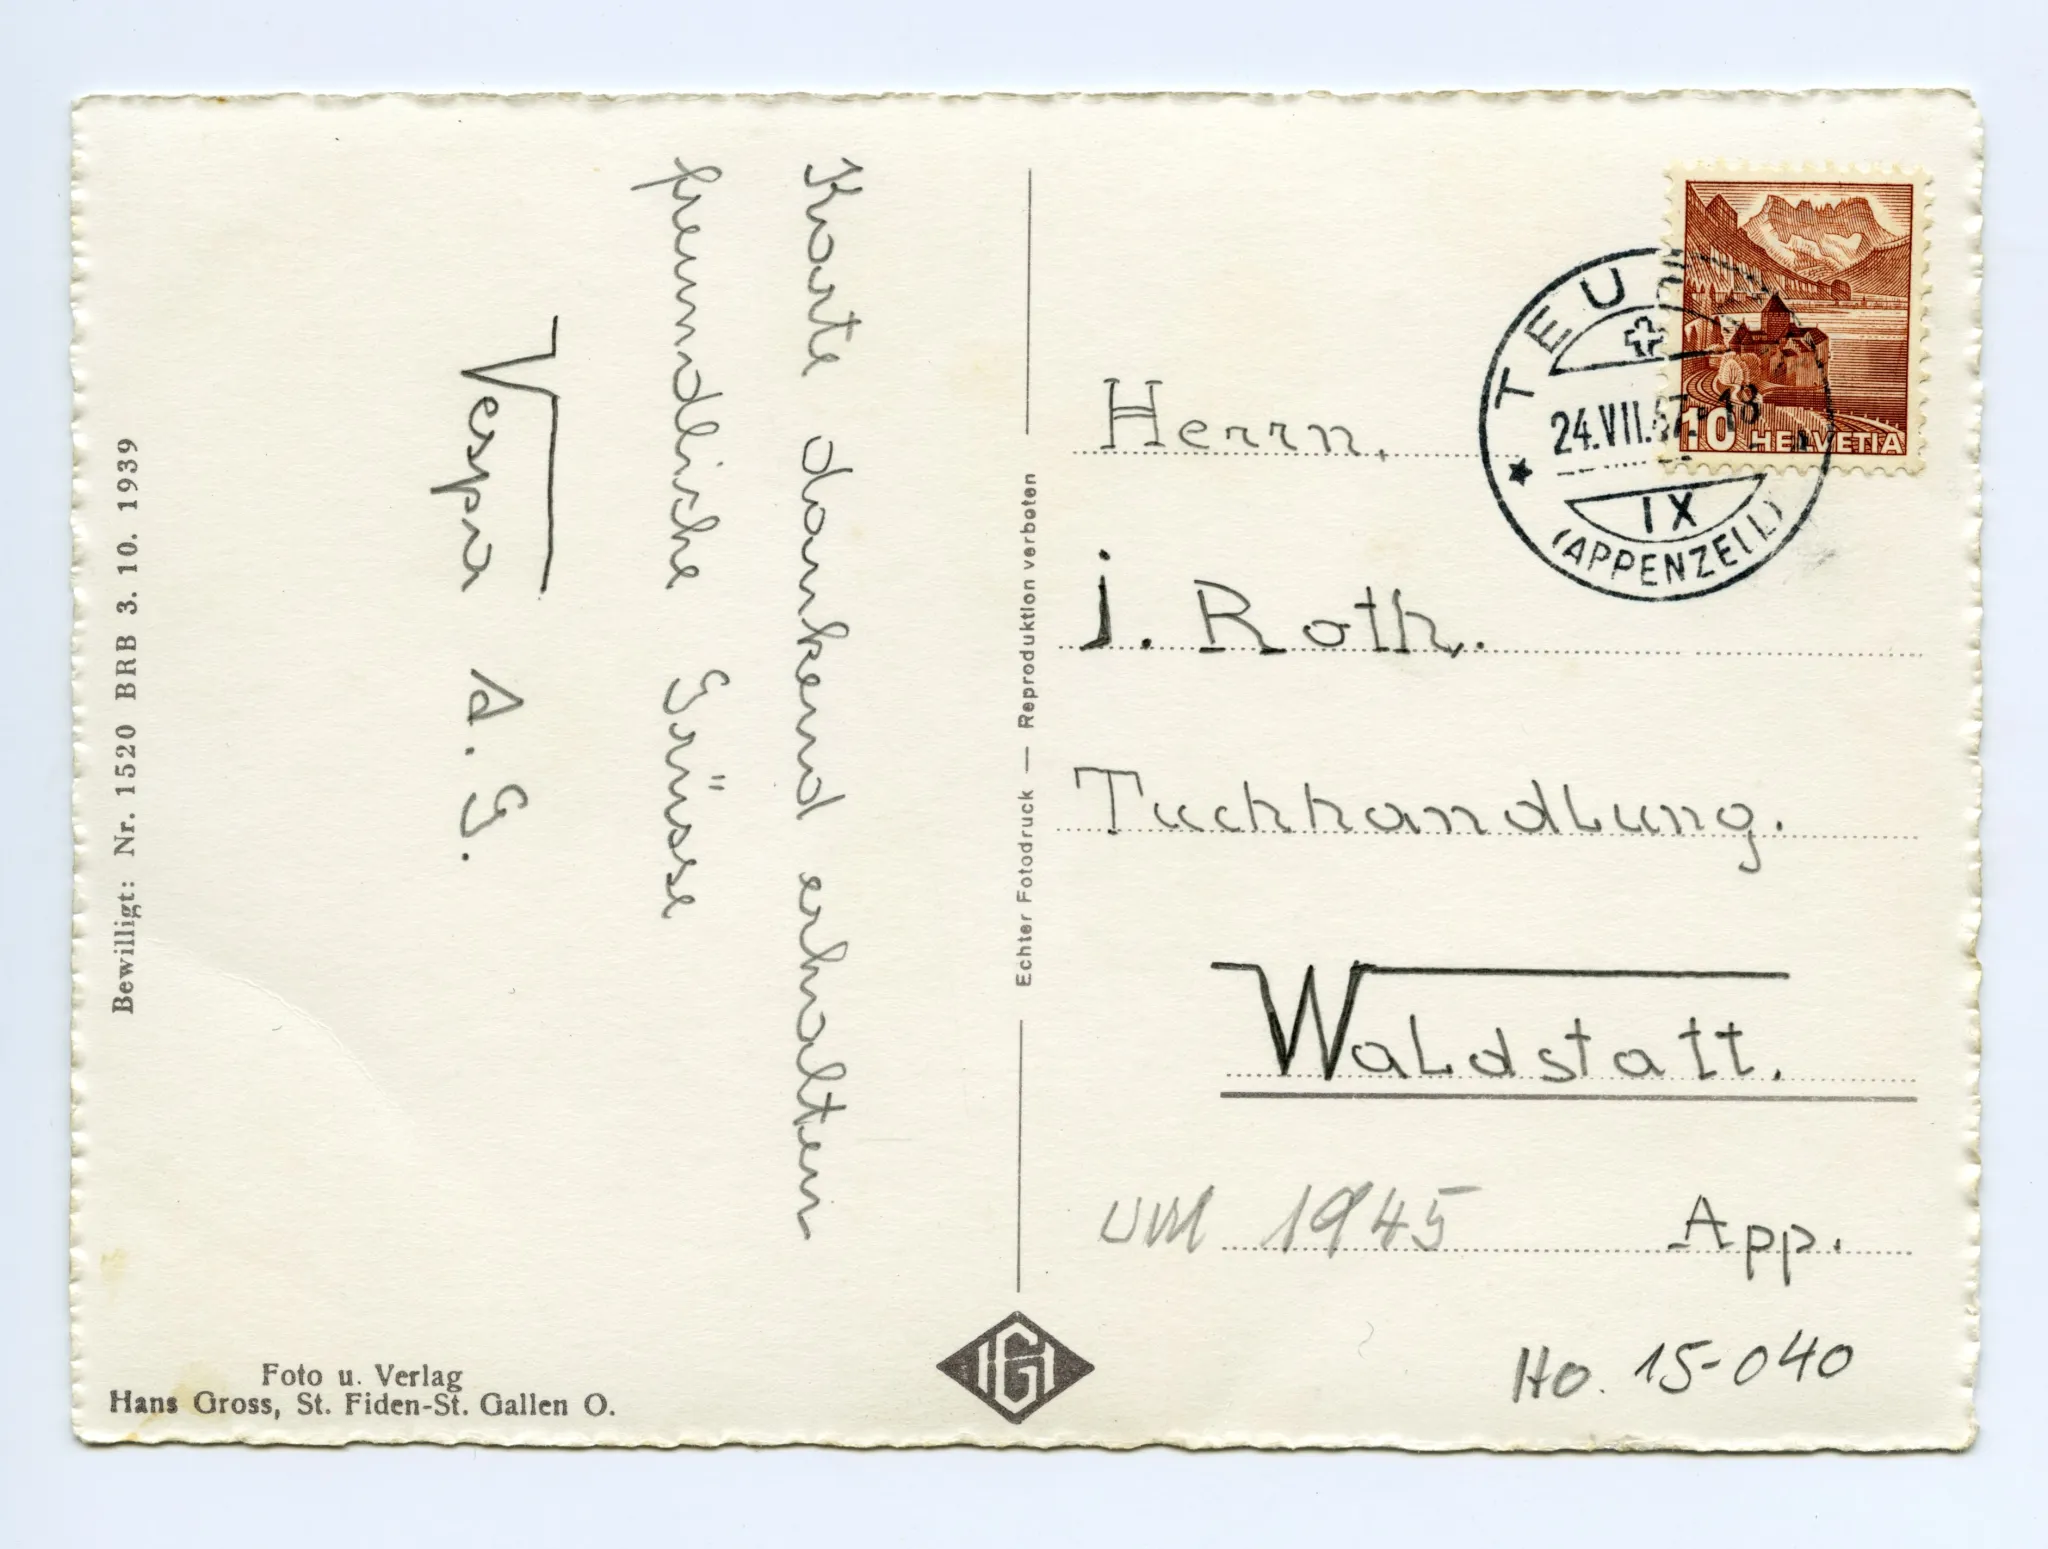 Karte dankend erhalten
freundliche Grüsse
Vespa A.G.
Bewilligt: Nr. 1520 BRB 3. 10. 1939
Foto u. Verlag
Hans Gross, St. Fiden-St. Gallen O.
Echter Fotodruck — Reproduktion verboten
HELVETIA
10
TEU
24.VII.47.-18
IX
(APPENZELL)
Herrn.
J. Roth.
Tuchhandlung.
Waldstatt.
App.
um 1945
Ho. 15-040